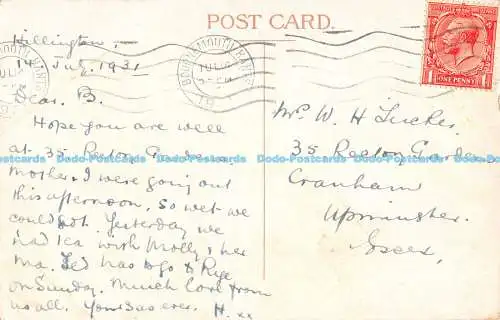 POST CARD.
Hillington.
14 July. 1931
Dear B.
Hope you are well
at 35
Mother & I were going out
this afternoon. So wet we
could not. Yesterday we
had tea with Molly & her
Ma. Ted has to go to Rye
on Sunday. Much love from
us all. Yours as ever. H. xx
Mr. W H Tucker.
35
Cranham
Upminster.
Essex.
BOURNEMOUTH
ONE PENNY
Dodo-Postcards Dodo-Postcards Dodo-Postcards Dodo-Postcards Dodo-Postcards Dodo-Postcards